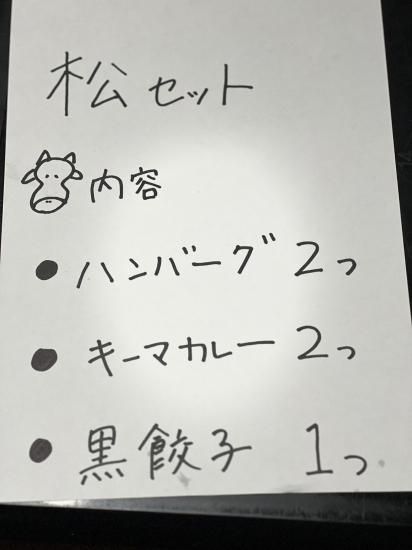 松セット
内容
● ハンバーグ 2つ
● キーマカレー 2つ
● 黒餃子 1つ